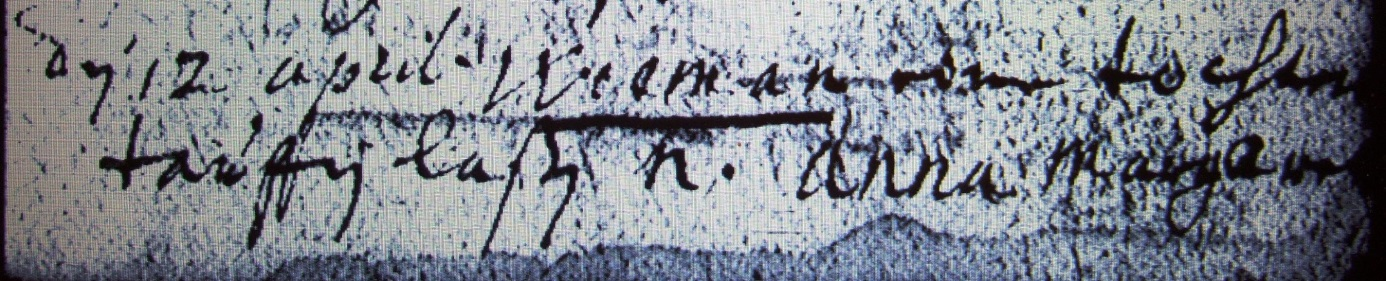 12 april Wieman eine tochter
tauffen laßen n. Anna Margare